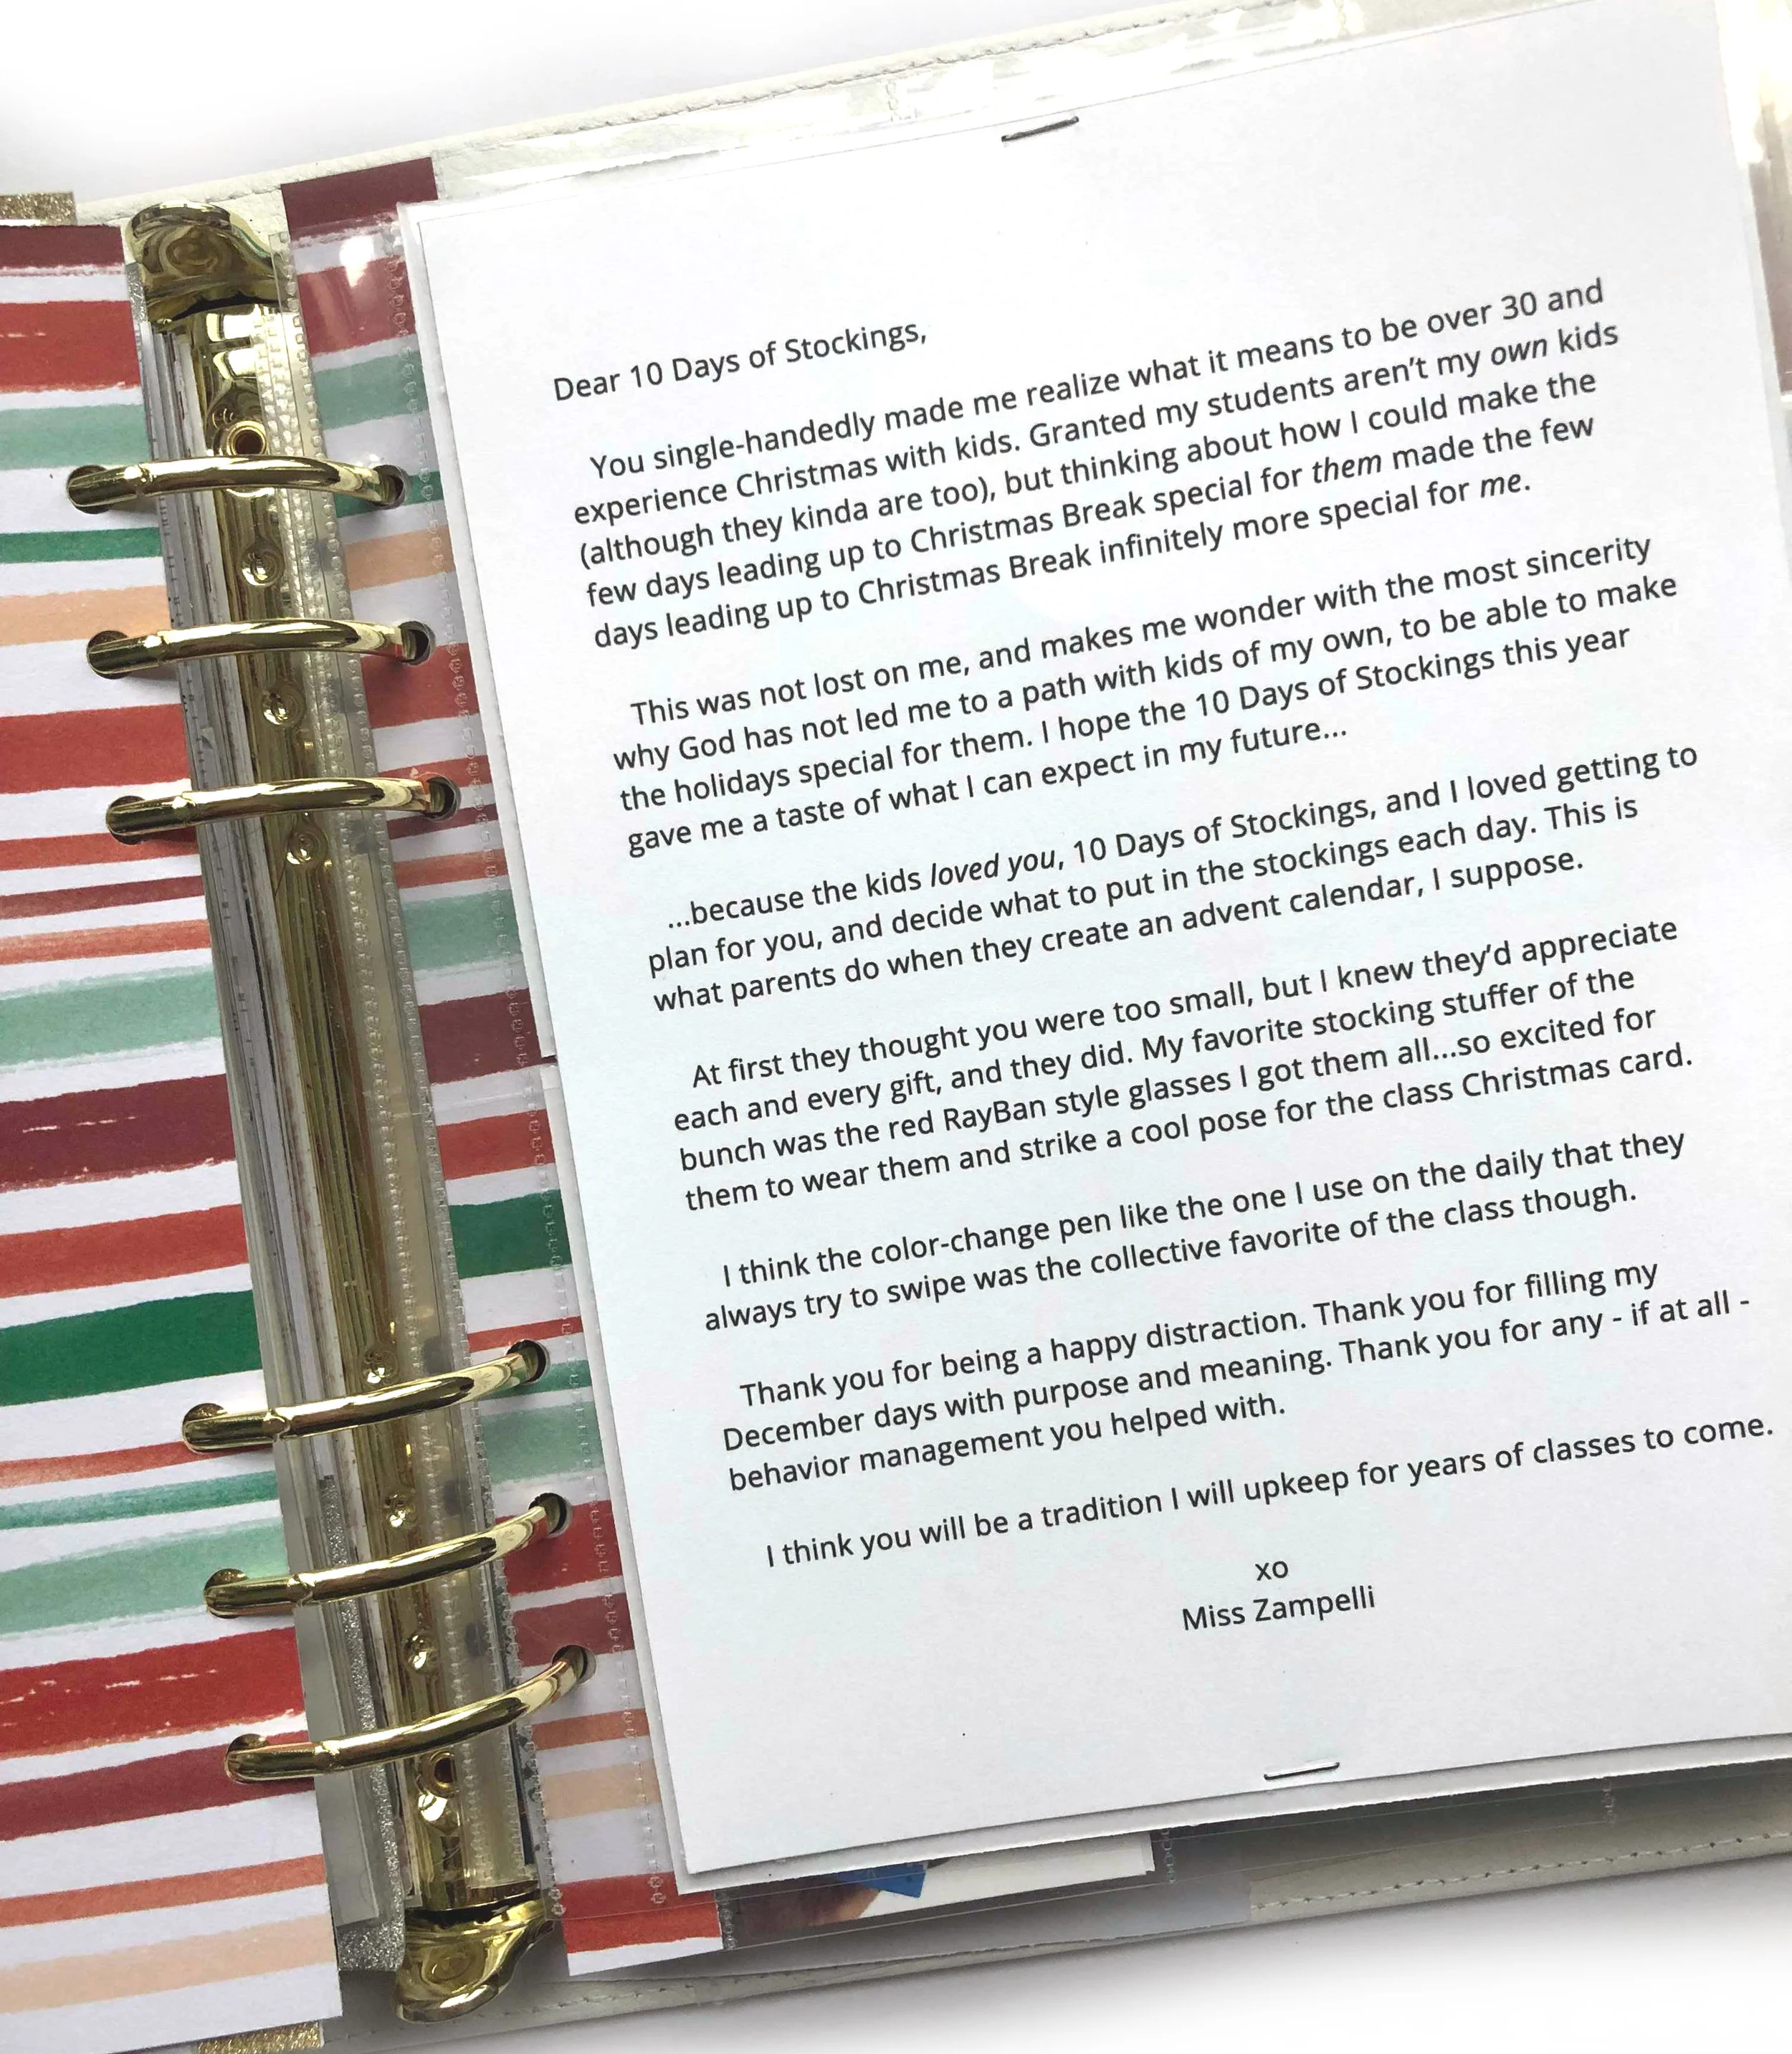 Dear 10 Days of Stockings,
You single-handedly made me realize what it means to be over 30 and
experience Christmas with kids. Granted my students aren’t my own kids
(although they kinda are too), but thinking about how I could make the
few days leading up to Christmas Break special for them made the few
days leading up to Christmas Break infinitely more special for me.
This was not lost on me, and makes me wonder with the most sincerity
why God has not led me to a path with kids of my own, to be able to make
the holidays special for them. I hope the 10 Days of Stockings this year
gave me a taste of what I can expect in my future...
...because the kids loved you, 10 Days of Stockings, and I loved getting to
plan for you, and decide what to put in the stockings each day. This is
what parents do when they create an advent calendar, I suppose.
At first they thought you were too small, but I knew they’d appreciate
each and every gift, and they did. My favorite stocking stuffer of the
bunch was the red RayBan style glasses I got them all...so excited for
them to wear them and strike a cool pose for the class Christmas card.
I think the color-change pen like the one I use on the daily that they
always try to swipe was the collective favorite of the class though.
Thank you for being a happy distraction. Thank you for filling my
December days with purpose and meaning. Thank you for any - if at all -
behavior management you helped with.
I think you will be a tradition I will upkeep for years of classes to come.
xo
Miss Zampelli